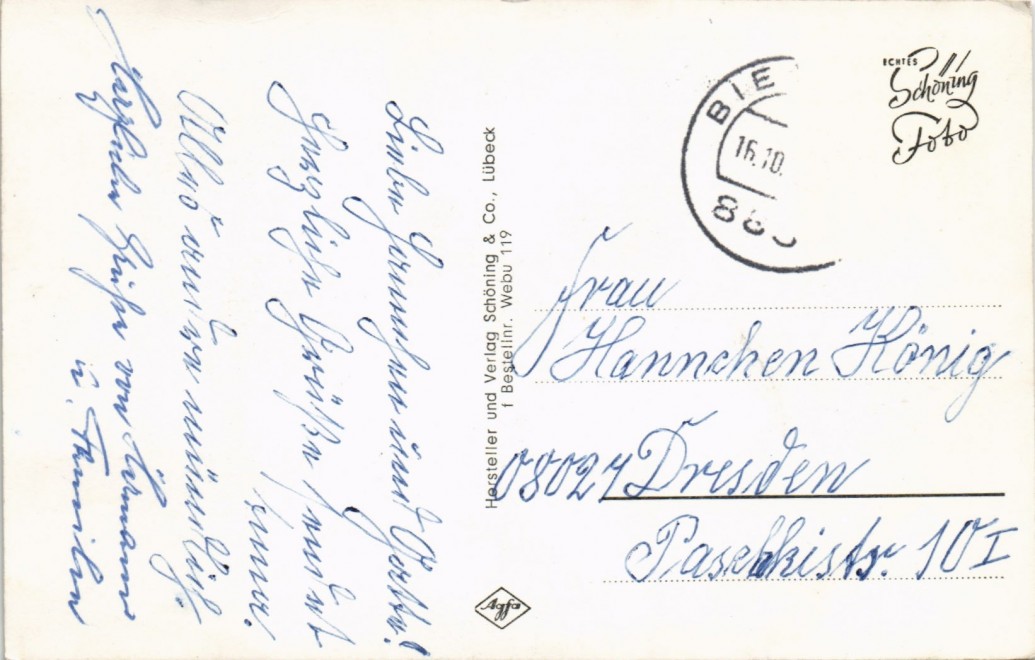 Liebe Hannchen und Gerta!
Herzliche Grüße sendet
Emmi.
Alles andere mündlich.
Herzliche Grüße von Hermann
u. Familie
Hersteller und Verlag Schöning & Co., Lübeck
f Bestellnr. Webu 119
BIE
16.10.
ECHTES
Schöning
Foto
Frau
Hannchen König
08027 Dresden
Paschkistr. 10 I
Agfa